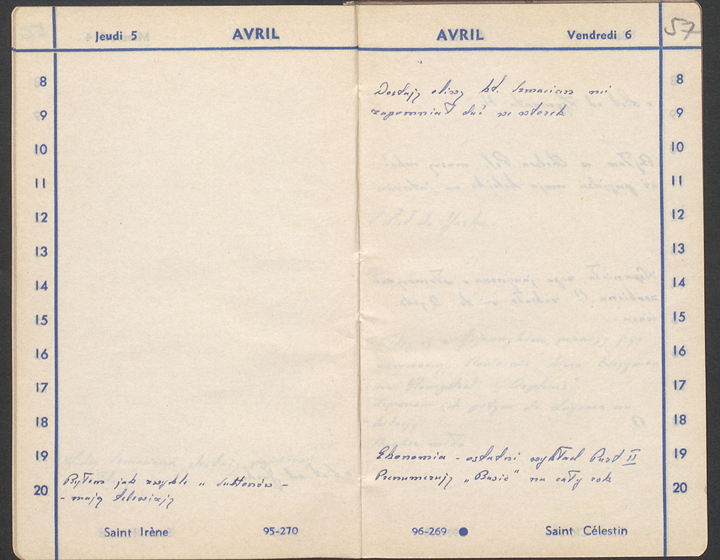 Jeudi 5 AVRIL
8
9
10
11
12
13
14
15
16
17
18
19
20
Byłem jak zwykle u Suttonów -
- mają telewizję
Saint Irène 95-270
AVRIL Vendredi 6
57
8
9
10
11
12
13
14
15
16
17
18
19
20
Dostaję oliwy kt. Szmacian mi
zapomniał dać we wtorek
Ekonomia - ostatni wykład Part II
Prenumeruję „Basic" na cały rok
96-269 Saint Célestin